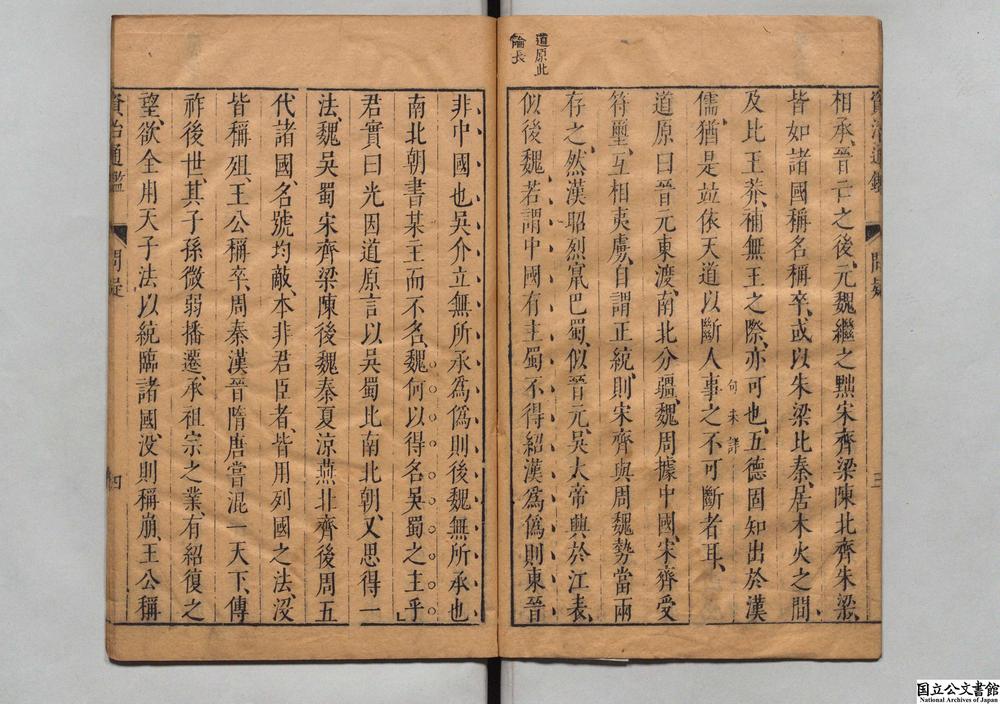 道原此
論長
資治通鑑 問疑 三
相承晉亡之後元魏繼之黜宋齊梁陳北齊朱梁
皆如諸國稱名稱卒或以朱梁比秦居木火之間
及比王莽補無王之際亦可也五德固知出於漢
句未詳
儒猶是竝依天道以斷人事之不可斷者耳
道原曰晉元東渡南北分疆魏周據中國宋齊受
符璽互相夷虜自謂正統則宋齊與周魏勢當兩
存之然漢昭烈竄巴蜀似晉元吳大帝興於江表
似後魏若謂中國有主蜀不得紹漢爲僞則東晉
非中國也吳介立無所承爲僞則後魏無所承也
南北朝書某主而不名魏何以得名吳蜀之主乎」
君實曰光因道原言以吳蜀比南北朝又思得一
法魏吳蜀宋齊梁陳後魏秦夏涼燕北齊後周五
代諸國名號均敵本非君臣者皆用列國之法沒
皆稱殂王公稱卒周秦漢晉隋唐嘗混一天下傳
祚後世其子孫微弱播遷承祖宗之業有紹復之
望欲全用天子法以統臨諸國没則稱崩王公稱
資治通鑑 問疑 四
国立公文書館
National Archives of Japan